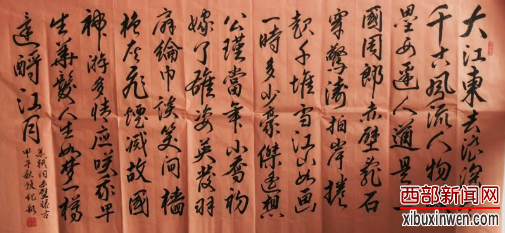 大江東去浪淘
千古風流人物故
壘西邊人道是三
國周郎赤壁亂石
穿驚濤拍岸捲
起千堆雪江山如畫
一時多少豪傑遙想
公瑾當年小喬初
嫁了雄姿英發羽
扇綸巾談笑間檣
櫓灰飛煙滅故國
神游多情應笑我早
生華髮人生如夢一樽
還酹江月
蘇軾詞赤壁懷古
甲午秋
西部新闻网
xibuxinwen.com